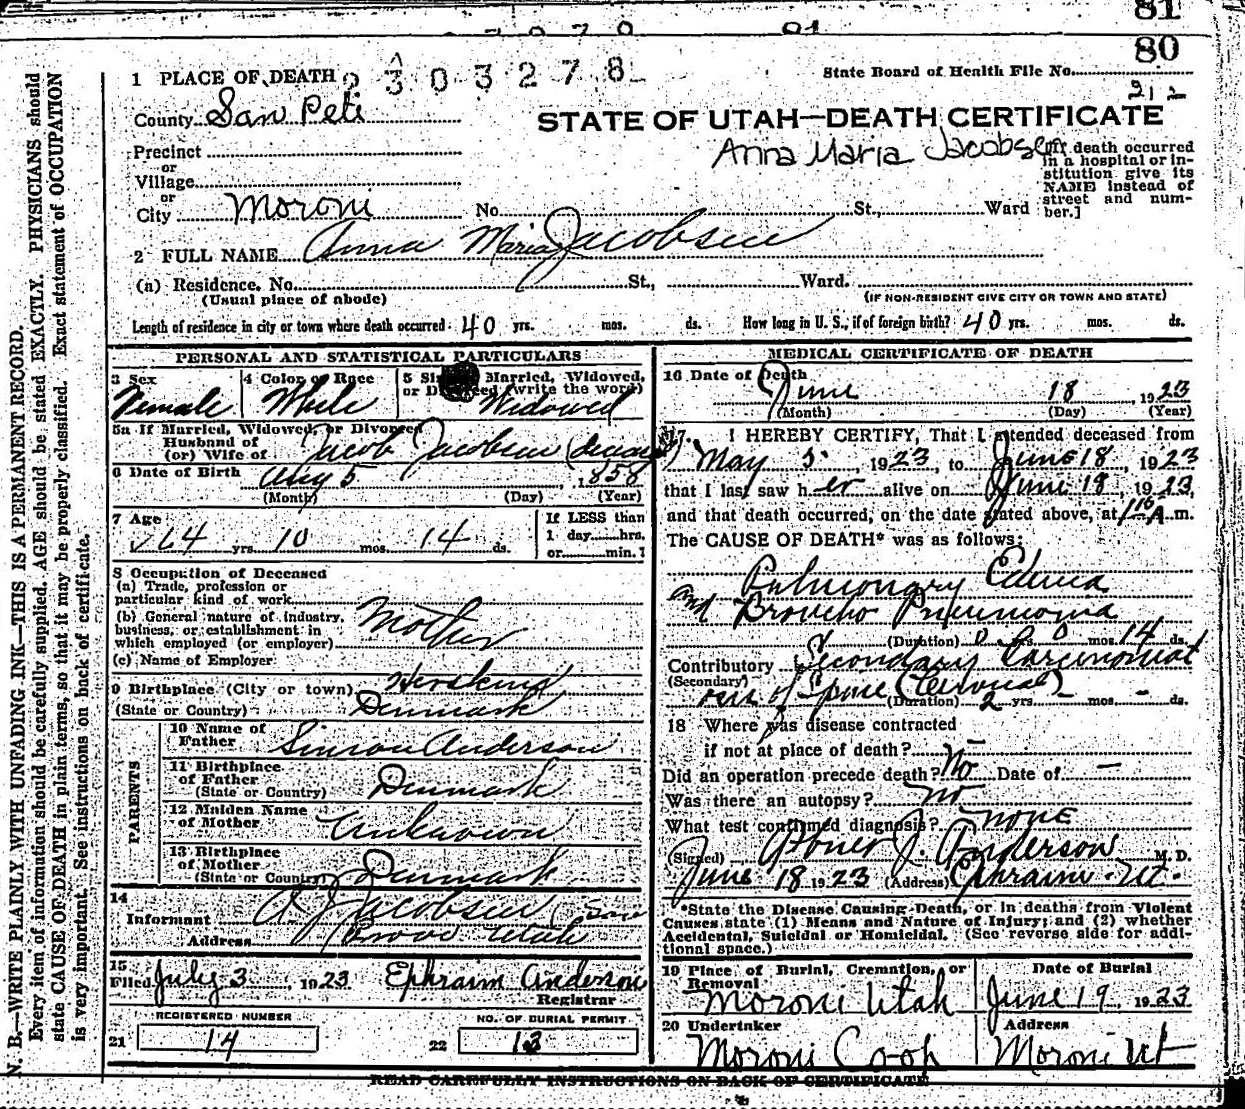 81
80
1 PLACE OF DEATH 2303278
State Board of Health File No.
212
County San Pete
STATE OF UTAH—DEATH CERTIFICATE
Anna Maria Jacobsen
[If death occurred in a hospital or institution give its NAME instead of street and number.]
Precinct
or
Village
or
City Moroni No. St., Ward
2 FULL NAME Anna Maria Jacobsen
(a) Residence. No. St., Ward.
(Usual place of abode) (IF NON-RESIDENT GIVE CITY OR TOWN AND STATE)
Length of residence in city or town where death occurred 40 yrs. mos. ds. How long in U. S., if of foreign birth? 40 yrs. mos. ds.
PERSONAL AND STATISTICAL PARTICULARS
3 Sex
Female
4 Color or Race
White
5 Single, Married, Widowed,
or Divorced (write the word)
Widowed
5a If Married, Widowed, or Divorced
Husband of
(or) Wife of Jacob Jacobsen
6 Date of Birth Aug 5, 1858
(Month) (Day) (Year)
7 Age
64 yrs. 10 mos. 14 ds.
If LESS than
1 day hrs.
or min. ?
8 Occupation of Deceased
(a) Trade, profession or
particular kind of work
(b) General nature of Industry,
business, or establishment in
which employed (or employer)
Mother
(c) Name of Employer
9 Birthplace (City or town)
(State or Country) Denmark
PARENTS
10 Name of
Father Simon Anderson
11 Birthplace
of Father
(State or Country) Denmark
12 Maiden Name
of Mother Unknown
13 Birthplace
of Mother
(State or Country) Denmark
14
Informant A J Jacobsen (Son
Address Provo Utah
15
Filed July 3, 1923 Ephraim Anderson
Registrar
REGISTERED NUMBER NO. OF BURIAL PERMIT
21 14 22 13
MEDICAL CERTIFICATE OF DEATH
16 Date of Death
June 18, 1923
(Month) (Day) (Year)
17. I HEREBY CERTIFY, That I attended deceased from
May 5, 1923, to June 18, 1923
that I last saw her alive on June 18, 1923,
and that death occurred, on the date stated above, at A.m.
The CAUSE OF DEATH* was as follows:
Pulmonary Edema
and Broncho Pneumonia
(Duration) 0 yrs. 0 mos. 14 ds.
Contributory Secondary Carcinomat
(Secondary)
of Spine (Cervical)
(Duration) 2 yrs. — mos. — ds.
18 Where was disease contracted
if not at place of death? —
Did an operation precede death? No Date of —
Was there an autopsy? No
What test confirmed diagnosis? none
(Signed) Abner J. Anderson M. D.
June 18 1923 (Address) Ephraim Ut.
*State the Disease Causing Death, or in deaths from Violent
Causes state (1) Means and Nature of Injury; and (2) whether
Accidental, Suicidal or Homicidal. (See reverse side for additional space.)
19 Place of Burial, Cremation, or
Removal
Moroni Utah
Date of Burial
June 19, 1923
20 Undertaker
Moroni Coop
Address
Moroni Ut
READ CAREFULLY INSTRUCTIONS ON BACK OF CERTIFICATE
N. B.—WRITE PLAINLY WITH UNFADING INK—THIS IS A PERMANENT RECORD.
Every item of information should be carefully supplied. AGE should be stated EXACTLY. PHYSICIANS should
state CAUSE OF DEATH in plain terms, so that it may be properly classified. Exact statement of OCCUPATION
is very important. See instructions on back of certificate.